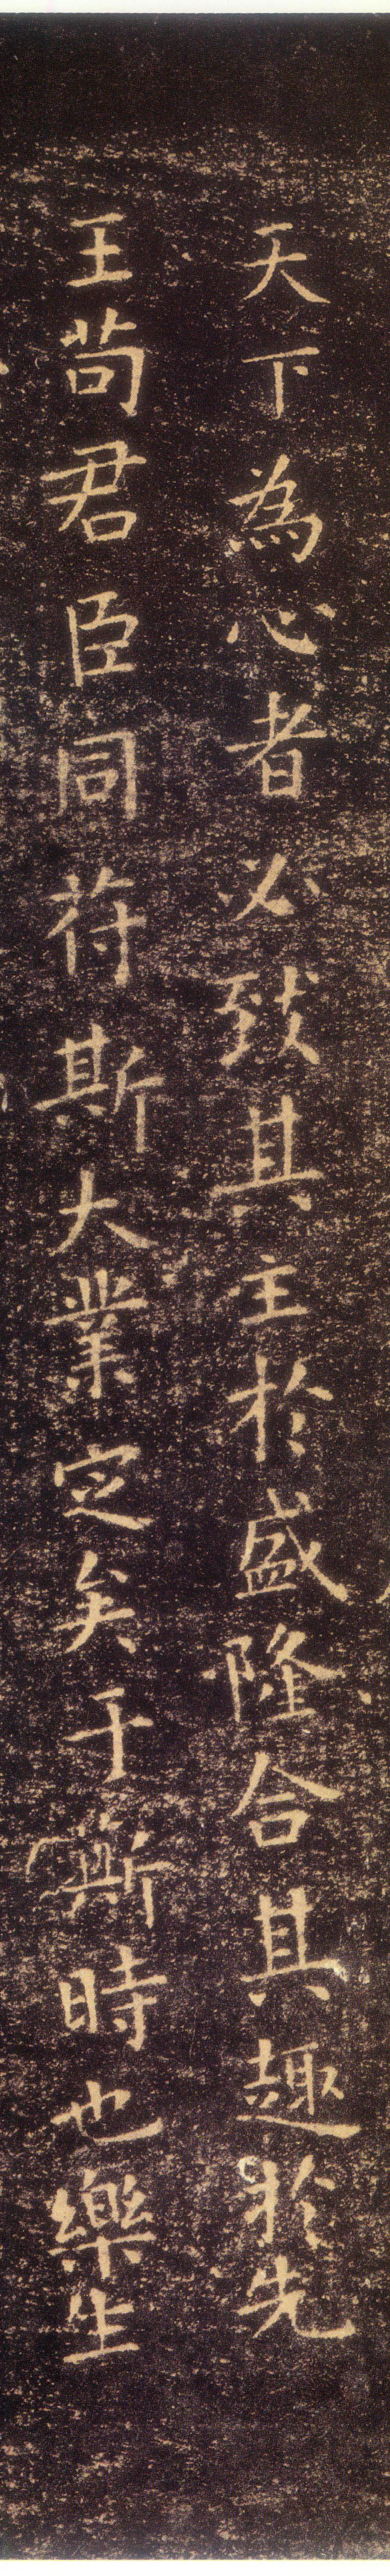 天下為心者必致其主於盛隆合其趣於先
王苟君臣同符斯大業定矣于斯時也樂生